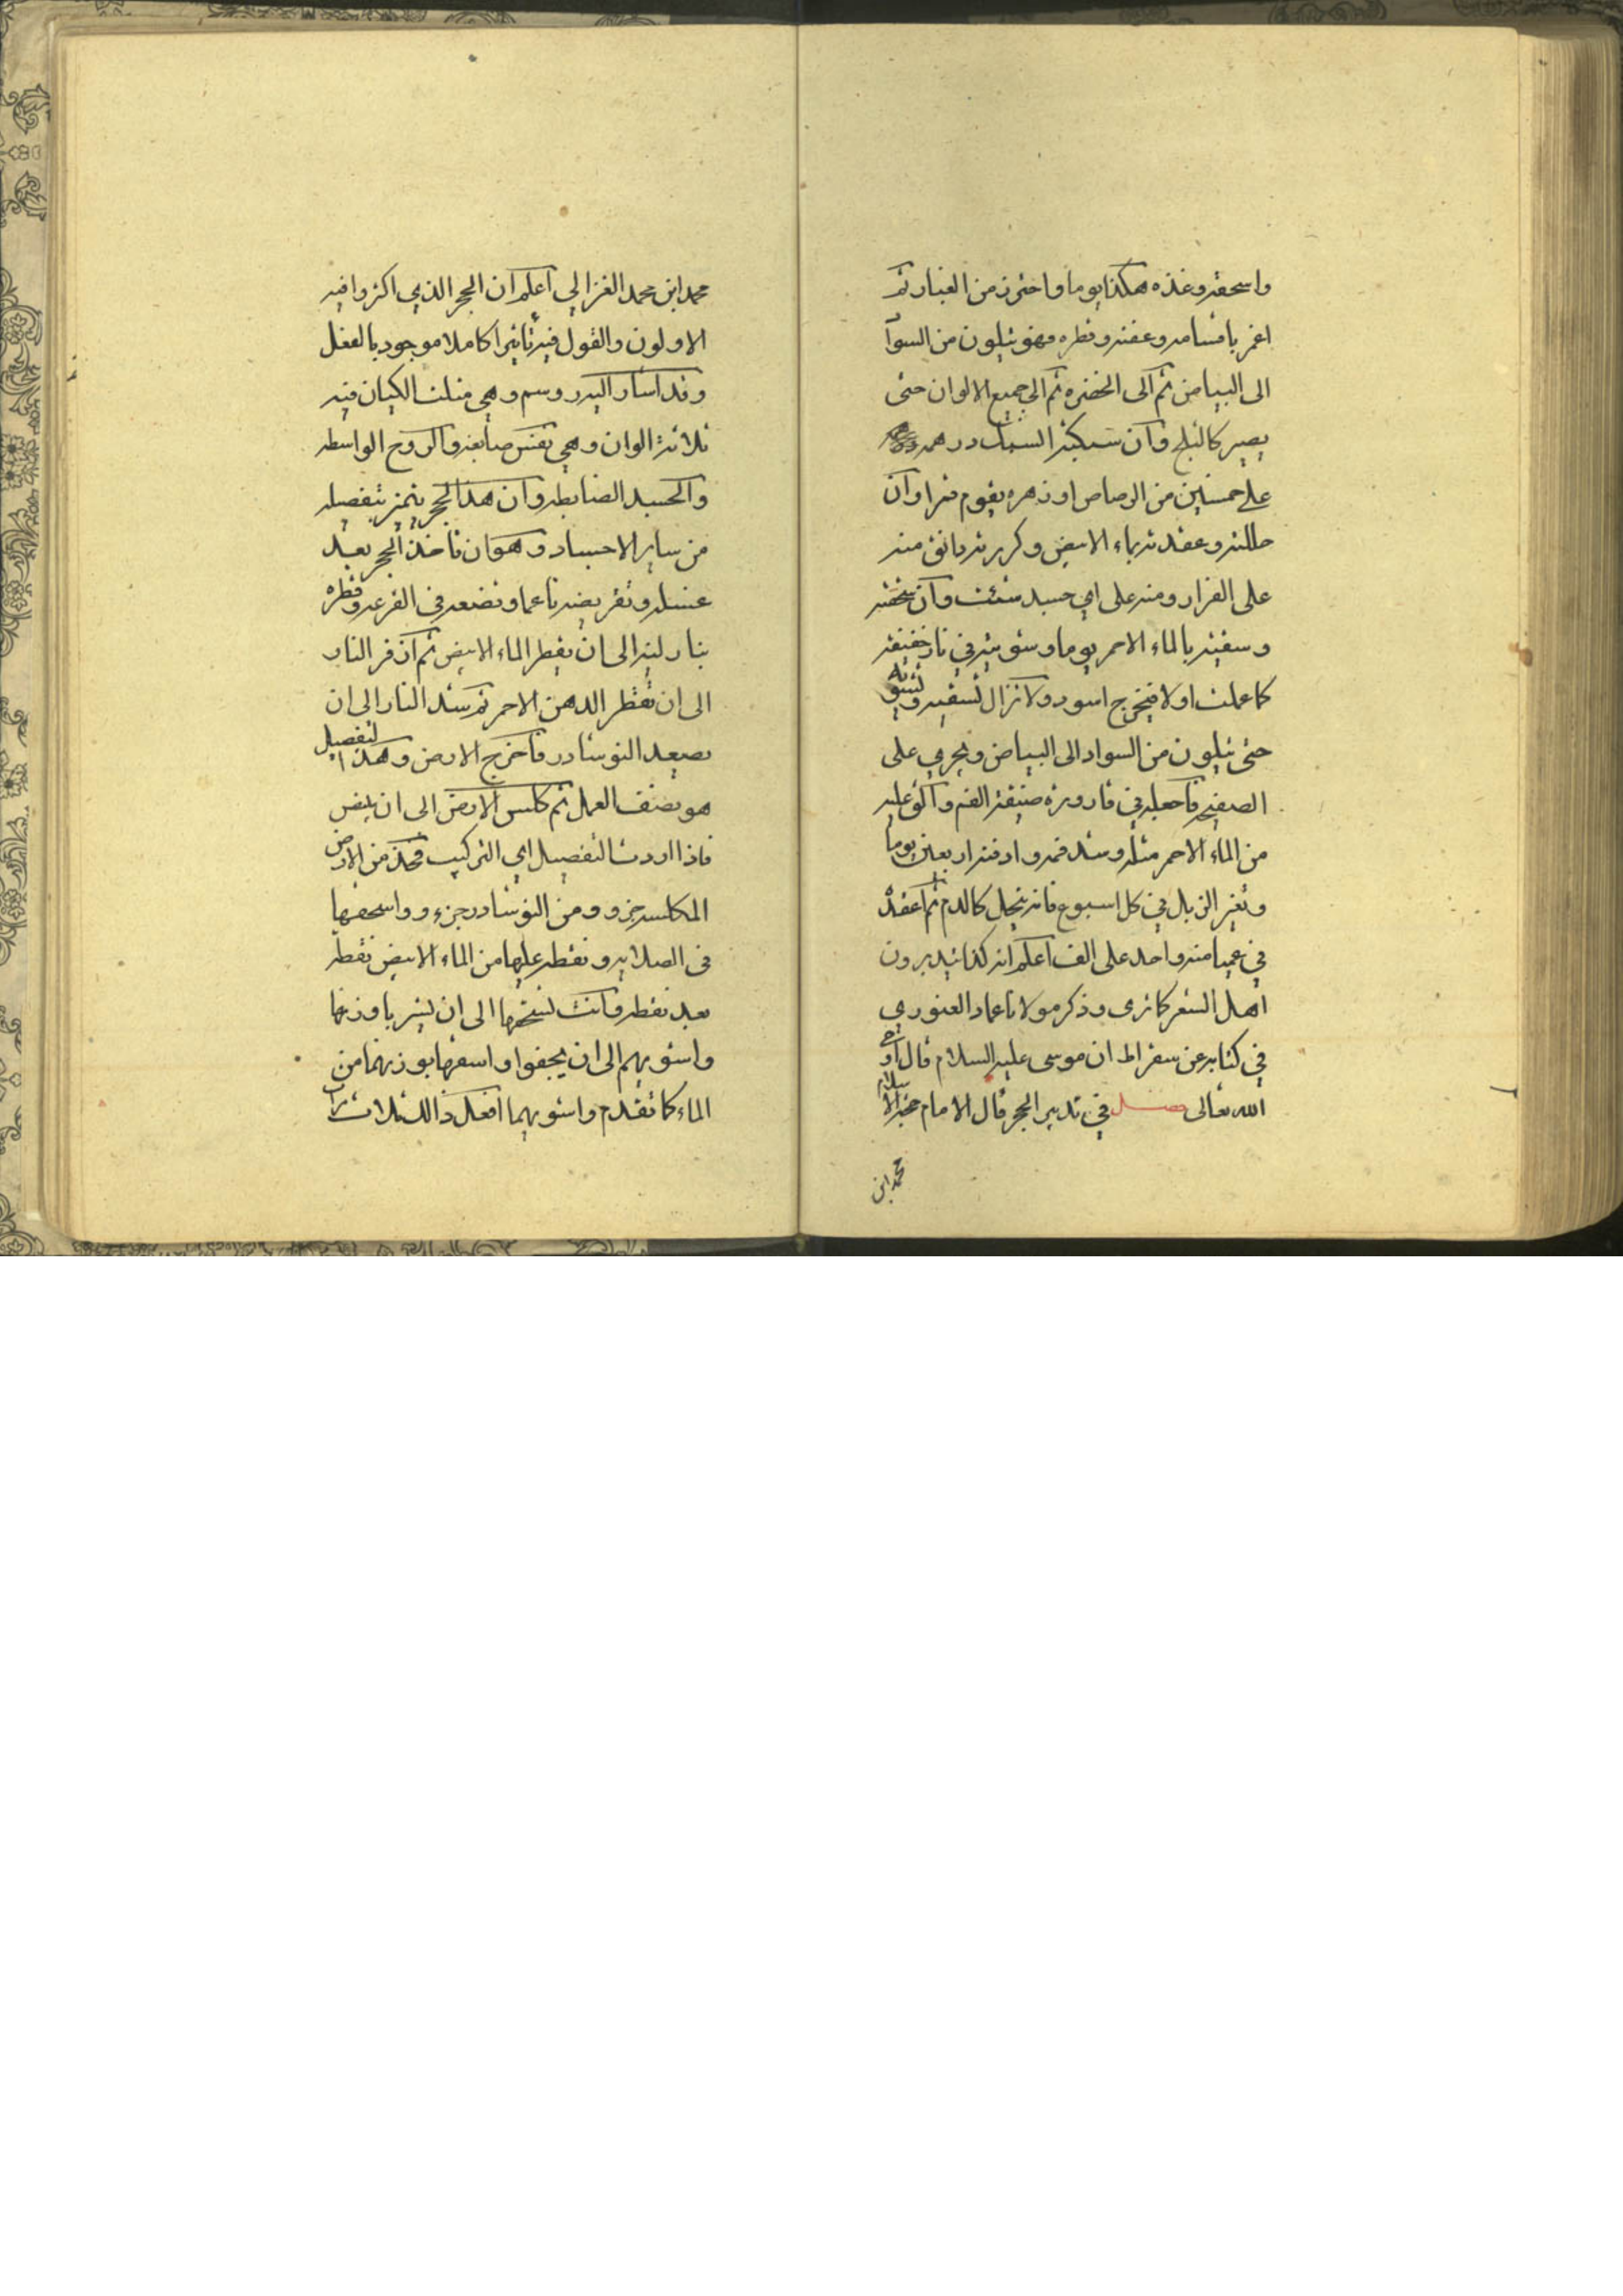 واسحقه وغذه هكذا يوما واحترز من الغبار ثم
اغمر باقسامه وعفنه وقطره فهو يتلون من السوا
الى البياض ثم الى الخضره ثم الى جميع الالوان حتى
يصير كالثلج وان سبكته السبك درهمه
على خمسين من الرصاص او زهره يقوم قمرا وان
حللته وعقدته بماء الابيض وكررته دانق منه
على الفرار ومنه على اي جسد شئت وان سحقته
وسقيته بالماء الاحمر يوما وشويته في نار خفيفه
كما عملت اولا فيخرج اسود ولا تزال تسقيه وتشويه
حتى يتلون من السواد الى البياض ويجري على
الصفيحه فاجعله في قاروره ضيقة الفم والق عليه
من الماء الاحمر مثله وشد فمه وادفنه اربعين يوما
وتغير الزبل في كل اسبوع فانه ينحل كالدم ثم اعقده
في عميا منه واحد على الف اعلم انه كذا يدبرون
اهل الشعر كما ترى وذكر مولانا عماد
في كتابه عن سقراط ان موسى عليه السلام قال اوحى
الله تعالى فصل في تدبير الحجر قال الامام حجة الاسلام
محمد ابن
محمد ابن محمد الغزالي اعلم ان الحجر الذي اكثروا فيه
الاولون والقول فيه تاثيرا كاملا موجود بالفعل
وقد اشار اليه وهي مثلث الكيان فيه
ثلاثة الوان وهي نفس صابغه والروح الواسطه
والجسد الضابطه وان هذا الحجر يتميز بتفصيله
من ساير الاجساد وهو ان تاخذ الحجر بعد
غسله وتقرضه ناعما وتضعه في القرعه وقطره
بنار لينه الى ان يقطر الماء الابيض ثم النار
الى ان تقطر الدهن الاحمر ثم شد النار الى ان
يصعد النوشادر فاخرج الارض وهذا التفصيل
هو نصف العمل ثم كلس الارض الى ان يبيض
فاذا اردت التفصيل اي التركيب فخذ من الارض
المكلسه جزو ومن النوشادر جزء وواسحقها
في الصلايه وتقطر عليها من الماء الابيض نقطه
بعد نقطه وانت تسحقها الى ان تشربا وزنها
واشويهم الى ان يجفوا واسقها بوزنهما من
الماء كما تقدم واشويهما افعل ذالك ثلاث مرات